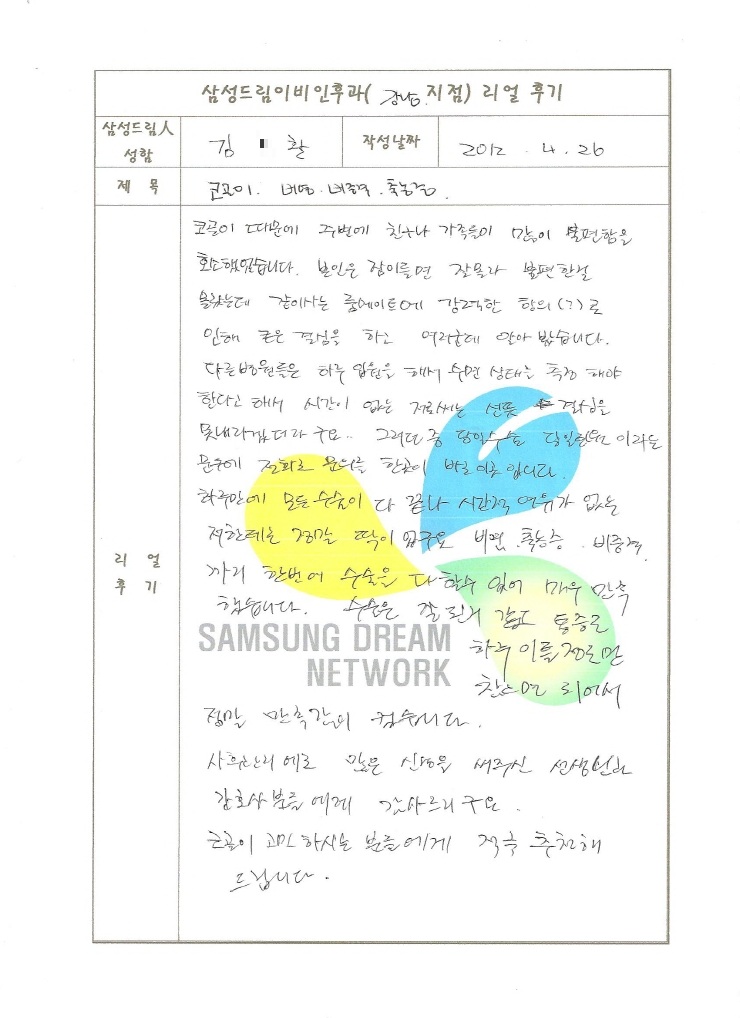 삼성드림이비인후과(강남.지점) 리얼 후기
삼성드림人
성함
김 환
작성날짜
2012. 4. 26
제 목
코골이. 비염. 비중격. 축농증.
리 얼
후 기
코골이 때문에 주변에 친구나 가족들이 많이 불편함을
호소했었습니다. 본인은 잠이들면 잘몰라 불편한걸
몰랐는데 같이사는 룸메이트에 강력한 항의(?)로
인해 큰 결심을 하고 여러군데 알아 봤습니다.
다른병원들은 하루 입원을 해서 수면 상태를 측정 해야
한다고 해서 시간이 없는 저로써는 선뜻 결심을
못내리겠더라구요.. 그러던 중 당일수술 당일퇴원 이라는
문구에 전화로 문의를 한곳이 바로 이곳 입니다.
하루만에 모든 수술이 다 끝나 시간적 여유가 없는
저한테는 정말 딱이 였구요 비염. 축농증. 비중격.
까지 한번에 수술을 다 할수 있어 매우 만족
했습니다. 수술은 잘 된거 같고 통증도
하루 이틀정도만
참으면 되어서
정말 만족감이 컸습니다.
SAMSUNG DREAM
NETWORK
사후관리에도 많은 신경을 써주신 선생님과
간호사분들에게 감사드리구요.
코골이 고민 하시는 분들에게 적극 추천해
드립니다.